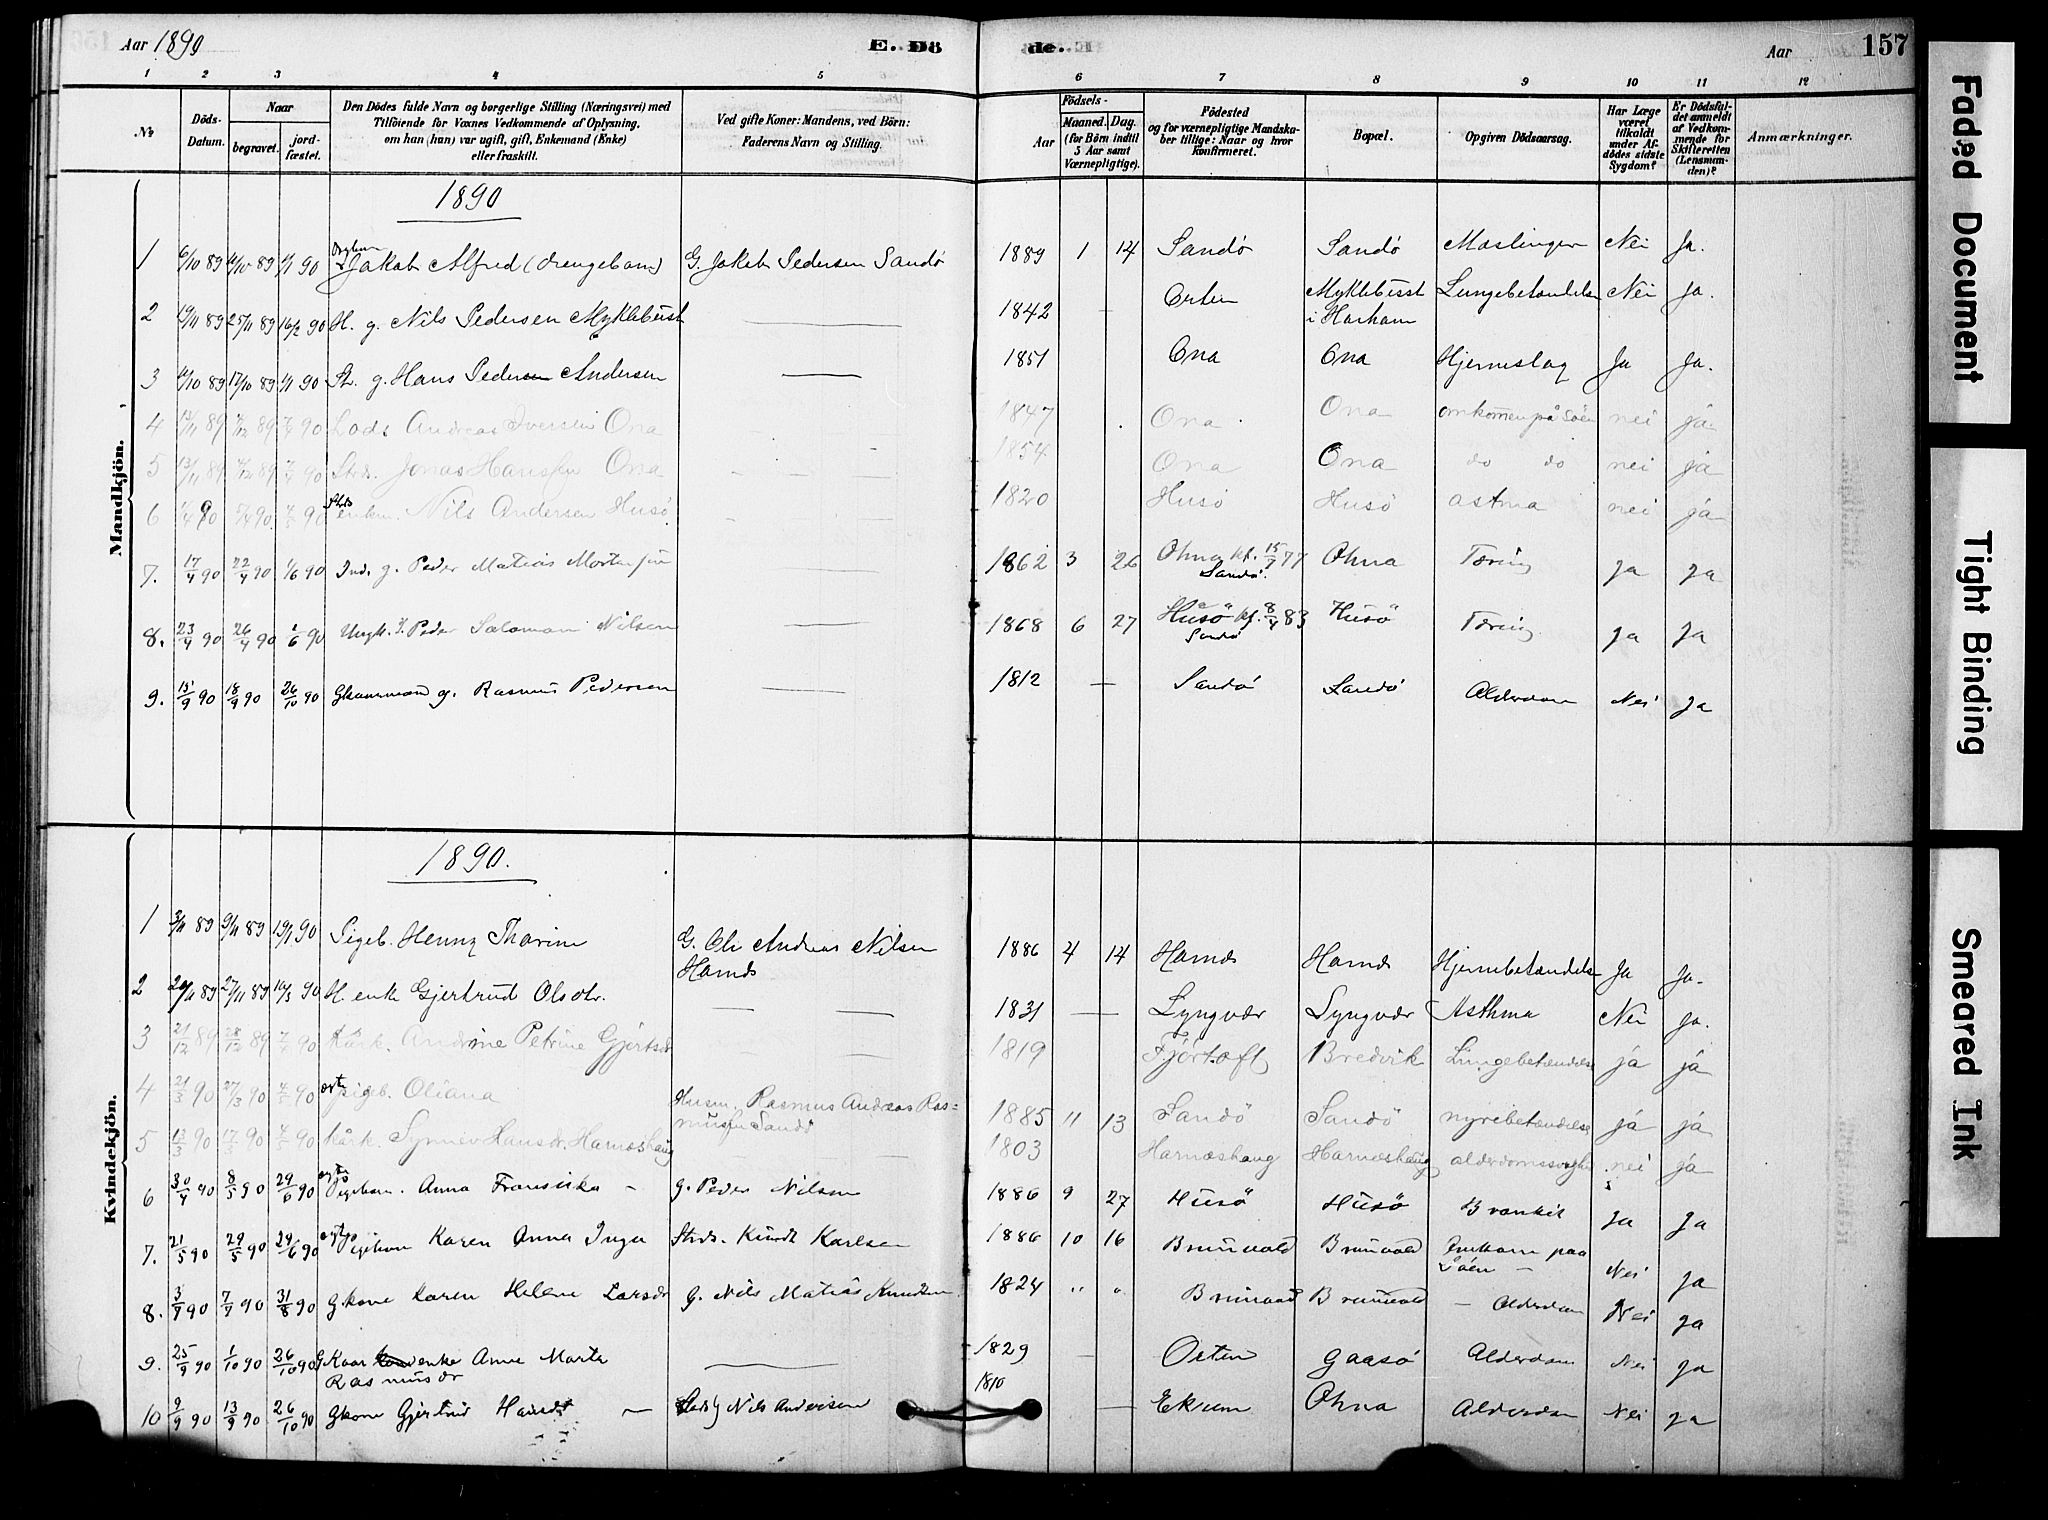 Aar 1890 E. Dö
de. Aar 157
1 2 3 4 5 6 7 8 9 10 11 12
№
Döds-Datum.
Naar
begravet.
jord-fæstet.
Den Dödes fulde Navn og borgerlige Stilling (Næringsvei) med
Tilföiende for Voxnes Vedkommende af Oplysning,
om han (hun) var ugift, gift, Enkemand (Enke)
eller fraskilt.
Ved gifte Koner: Mandens, ved Börn:
Faderens Navn og Stilling.
Födsels-
Aar
Maaned. Dag.
(for Börn indtil
5 Aar samt
Værnepligtige).
Födested
og for værnepligtige Mandska-
ber tillige: Naar og hvor
konfirmeret.
Bopæl.
Opgiven Dödsaarsag.
Har Læge
været
tilkaldt
under Af-
dödes sidste
Sygdom?
Er Dödsfal-
det anmeldt
af Vedkom-
mende for
Skifteretten
(Lensman-
den)?
Anmærkninger.
Mandkjön.
1890
1 6/10 89 90 Jakob Alfred (drengebarn) G. Jakob Pedersen Sandö 1889 1 14 Sandö Sandö Mæslinger Nei Ja.
2 19/11 89 25/11 89 16/2 90 H. g. Nils Pedersen Myklebust — 1842 — Orten Myklebust i Harham Lungebetændelse Nei Ja.
3 17/10 89 90 g. Hans Pedersen Andersen — 1851 Ona Ona Hjerneslag Ja Ja.
4 13/11 89 90 Lods Andreas Iversen Ona 1847 Ona Ona omkommen på Söen nei já
5 13/11 89 90 Strds. Jonas Hansen Ona 1854 Ona Ona do do nei já
6 1/4 90 90 90 Strds enkm. Nils Andersen Husö 1820 Husö Husö astma nei já
7. 17/4 90 22/4 90 1/6 90 Ind. g. Peder Matias Mortensen — 1862 3 26 Ohna kf. 15/7 77 Sandö. Ohna Tæring Ja Ja
8. 23/4 90 26/4 90 1/6 90 Ungk. Peder Salamon Nilsen — 1868 6 27 Husö kf. 8/7 83 Sandö Husö Tæring Ja Ja
9. 15/9 90 18/9 90 26/10 90 Gkaarmand g. Rasmus Pedersen — 1812 — Sandö Sandö Alderdom Nei Ja
Kvindekjön.
1890.
1 3/11 89 9/11 89 19/1 90 Pigeb. Henny Tharine G. Ole Andreas Nilsen Harnæs 1886 4 14 Harnæs Harnæs Hjernebetændelse Ja Ja.
2 20/11 89 27/11 89 16/3 90 H. enke Gjertrud Olsdtr. — 1831 — Lyngvær Lyngvær Asthma Nei Ja.
3 21/12 89 28/12 89 90 kårk. Andrine Petrine Gjertsdr — 1819 Fjörtoft Bredvik Lungebetændelse já já
4 21/3 90 27/3 90 90 ægte pigeb. Oliana Husm. Rasmus Andreas Ras= mussen Sandö 1885 11 13 Sandö Sandö nyrebetændelse já já
5 13/3 90 17/3 90 90 kårk. Synnev Hansdr. Harnæshaug 1803 Harnæshaug Harnæshaug alderdomssvaghed nei já
6 30/4 90 8/5 90 29/6 90 ægte Pigebarn. Anna Fransiska — g. Peder Nilsen 1886 9 27 Husö Husö Bronkit Ja Ja
7. 21/5 90 29/5 90 29/6 90 ægte Pigebarn Karen Anna Inga Strds. Knudt Karlsen 1886 10 16 Brunvold Brunvold Omkom paa Söen — Nei Ja
8. 3/7 90 7/7 90 31/8 90 Gkone Karen Helene Larsdr G. Nils Matias Knudtsen 1824 " " Brunvold Brunvold — Alderdom Nei Ja
9. 25/9 90 1/10 90 26/10 90 G Kaar enke Anne Marta Rasmusdr — 1829 — Orten Gaasö Alderdom Nei Ja
10 9/9 90 13/9 90 26/10 90 Gkone Gjertrud Hansdt — Nils Andersen 1810 — Ekrem Ohna Alderdom Nei Ja
Faded Document
Tight Binding
Smeared Ink